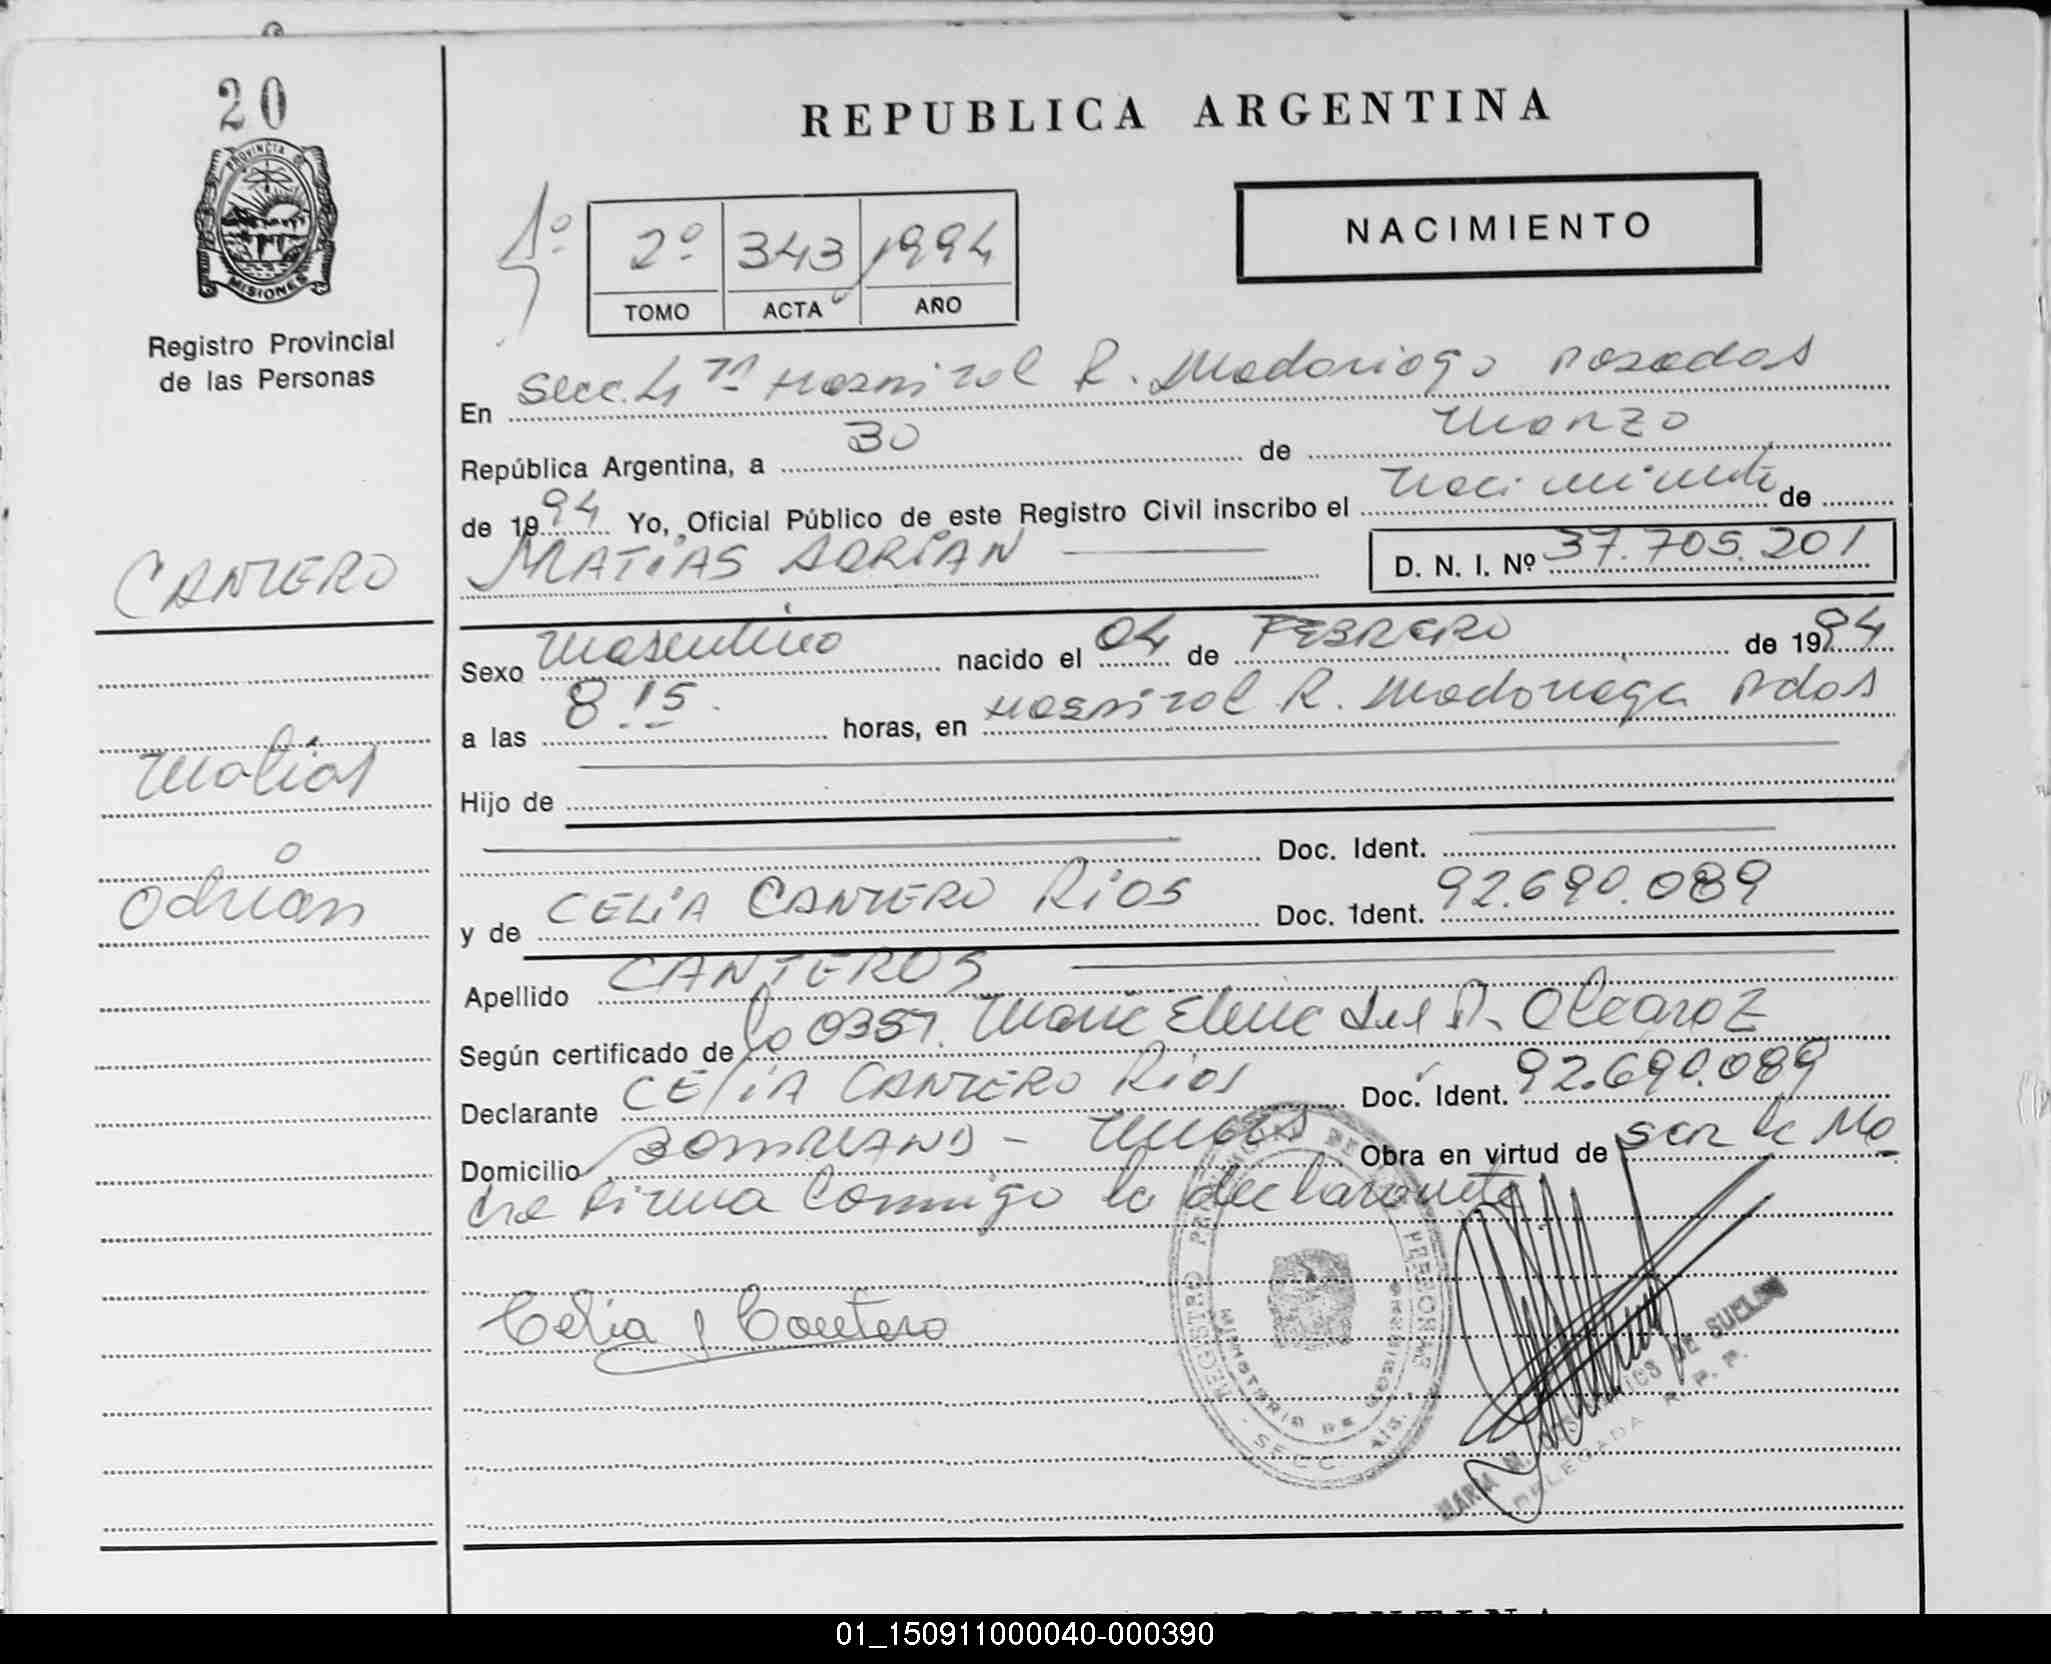 20
REPUBLICA ARGENTINA
PROVINCIA DE
MISIONES
Registro Provincial
de las Personas
1º
2º 343 1994
TOMO ACTA AÑO
NACIMIENTO
En Secc. 4ta Hospital R. Madariaga Posadas
República Argentina, a 30 de Marzo
de 1994 Yo, Oficial Público de este Registro Civil inscribo el Nacimiento de
MATIAS ADRIAN D. N. I. Nº 37.705.201
CANTERO
Matias
Adrian
Sexo Masculino nacido el 04 de FEBRERO de 1994
a las 8 15. horas, en Hospital R. Madariaga Pdas
Hijo de
Doc. Ident.
y de CELIA CANTERO RIOS Doc. Ident. 92.690.089
Apellido CANTEROS
Según certificado de la 0357. Maria Elena del P. Alcaraz
Declarante CELIA CANTERO Rios Doc. Ident. 92.690.089
Domicilio Obra en virtud de ser la Ma
dre Firma Conmigo la declarante
Celia Cantero
REGISTRO PERSONAS
MINISTERIO DE GOBIERNO
SECC. MIS.
MARIA DE SUELDO
DELEGADA R. P. P.
01_150911000040-000390